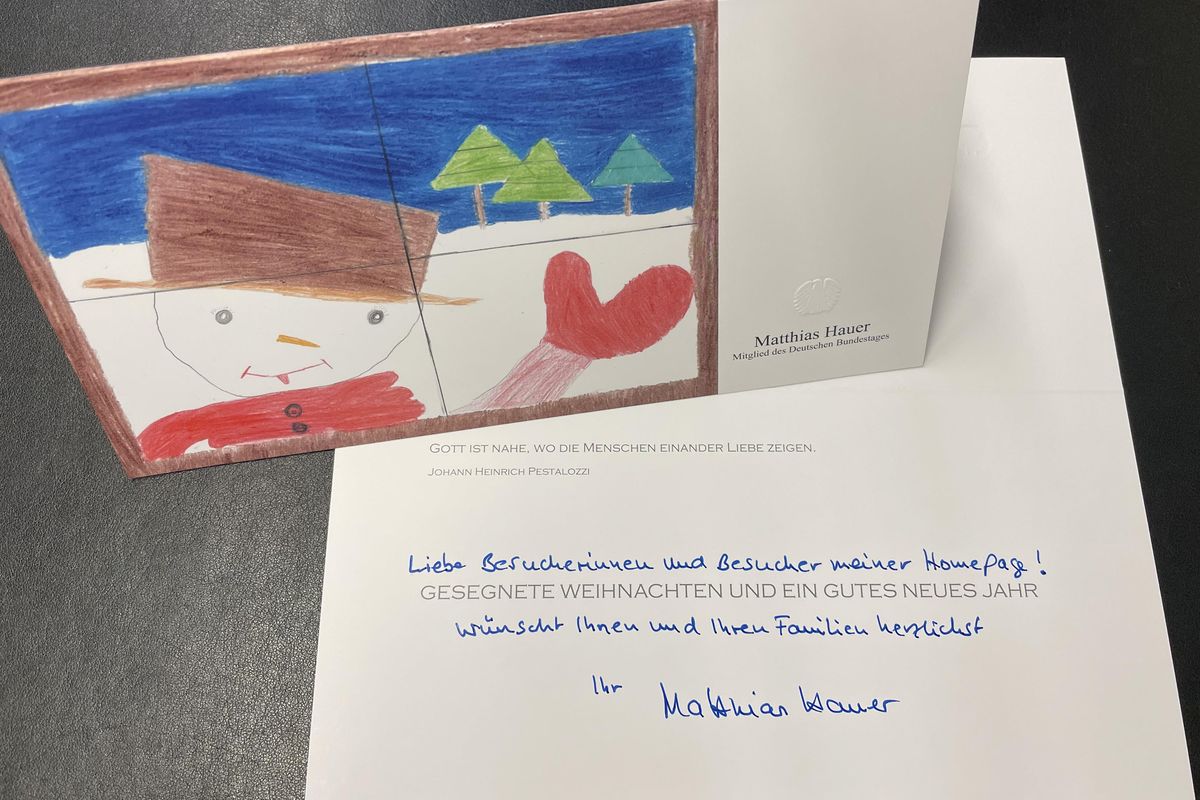 Matthias Hauer
Mitglied des Deutschen Bundestages
GOTT IST NAHE, WO DIE MENSCHEN EINANDER LIEBE ZEIGEN.
JOHANN HEINRICH PESTALOZZI
Liebe Besucherinnen und Besucher meiner Homepage!
GESEGNETE WEIHNACHTEN UND EIN GUTES NEUES JAHR
wünscht Ihnen und Ihren Familien herzlichst
Ihr Matthias Hauer